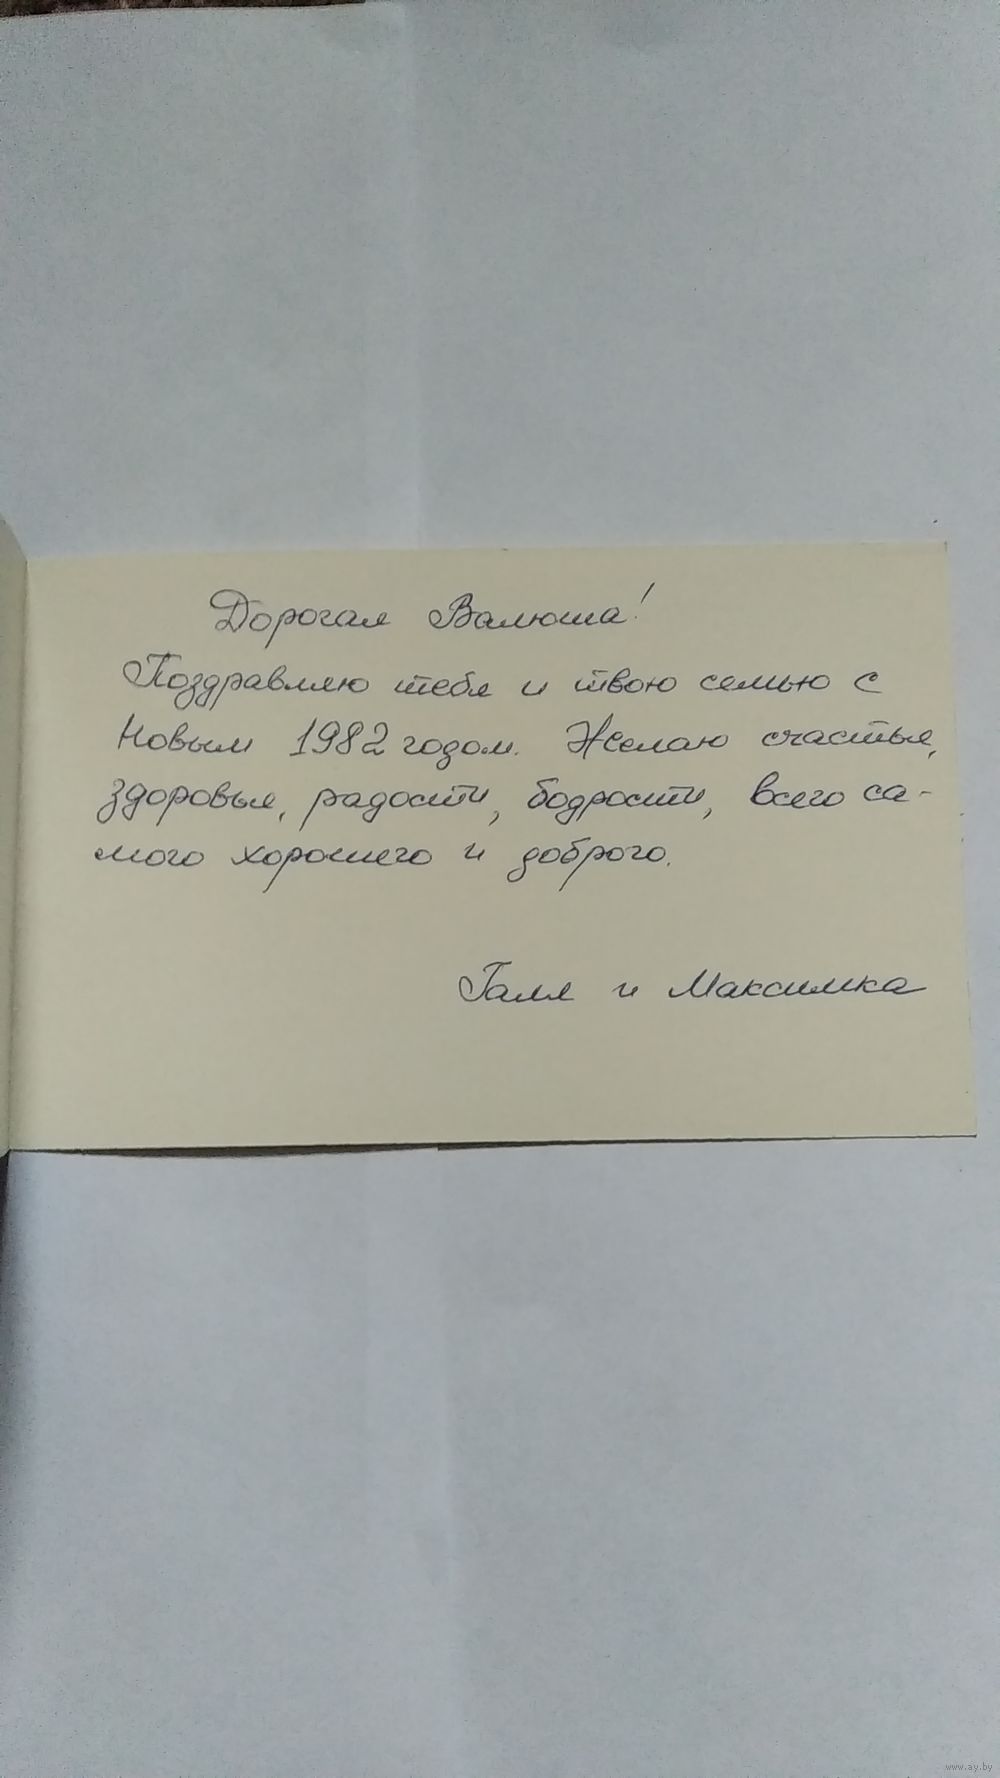 Дорогая Валюша!
Поздравляю тебя и твою семью с
Новым 1982 годом. Желаю счастья,
здоровья, радости, бодрости, всего са-
мого хорошего и доброго.
Галя и Максимка
www.ay.by